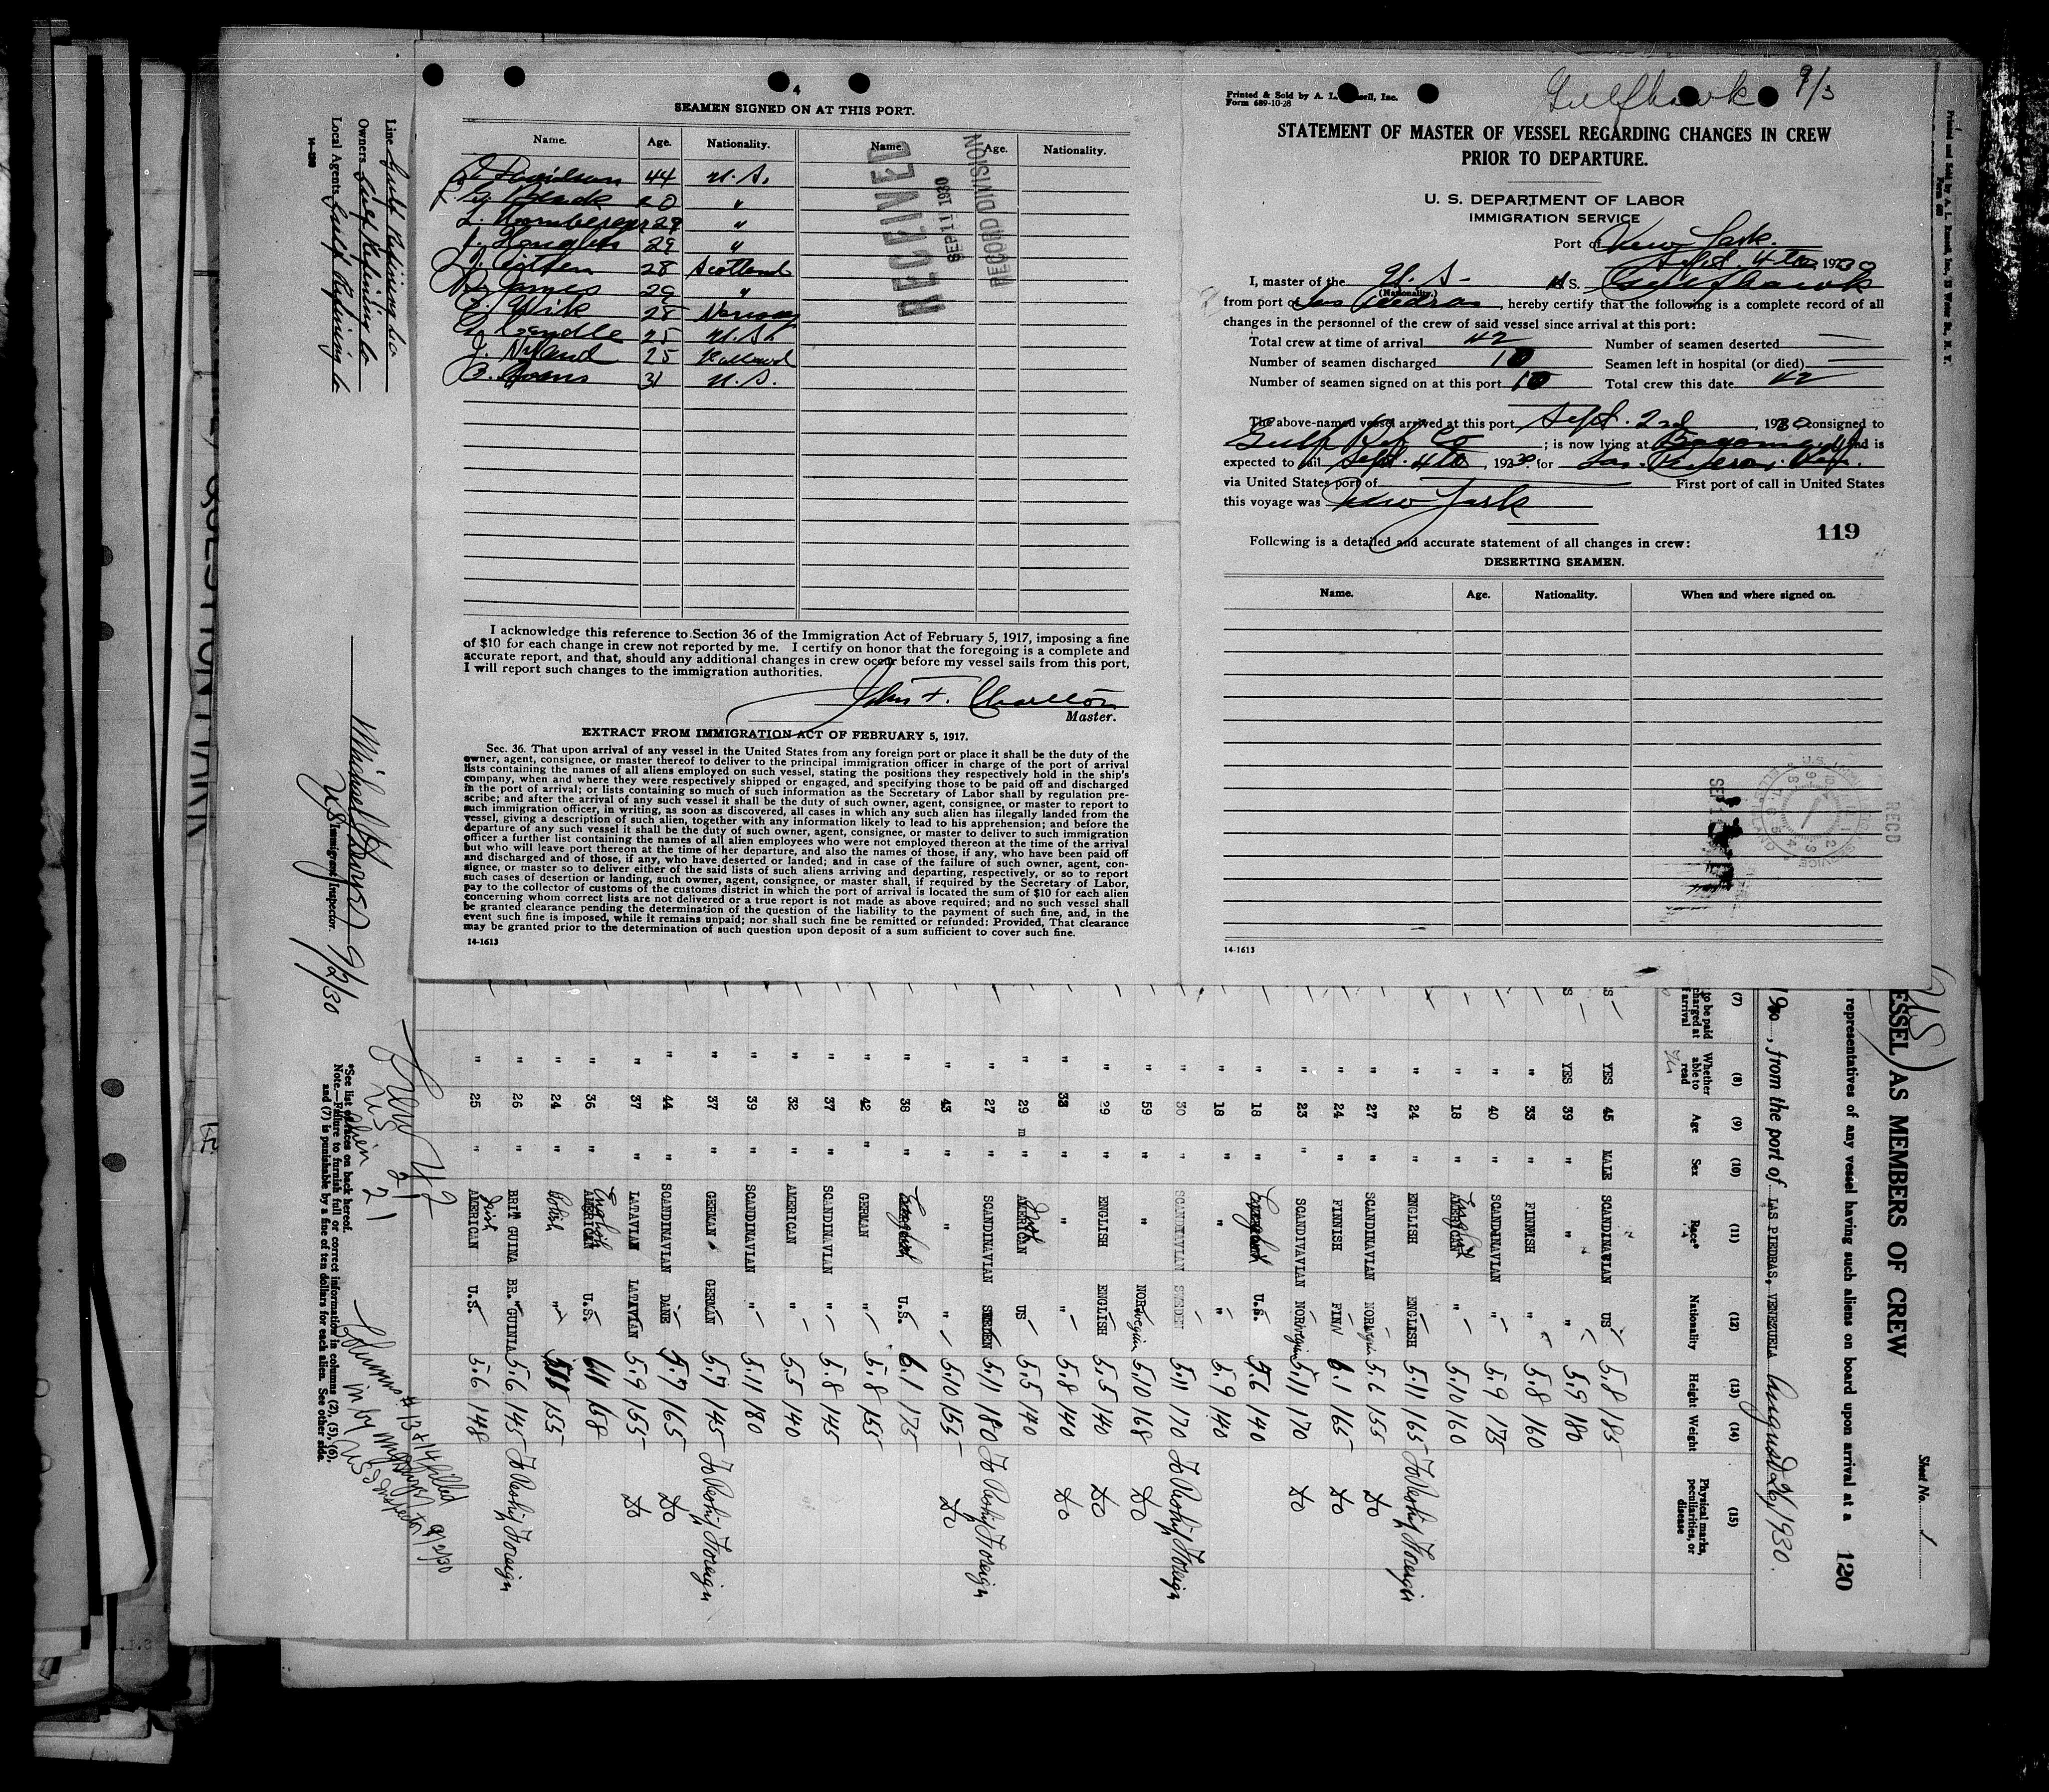 4
SEAMEN SIGNED ON AT THIS PORT.
Name. Age. Nationality. Name. Age. Nationality.
Davidson 44 U.S.
Black 20 "
L. 29 "
29 "
28 Scotland
James 29 "
Wik 28 Norway
25 U.S.
J. 25 Holland
31 U.S.
RECEIVED
SEP 11 1930
RECORD DIVISION
I acknowledge this reference to Section 36 of the Immigration Act of February 5, 1917, imposing a fine
of $10 for each change in crew not reported by me. I certify on honor that the foregoing is a complete and
accurate report, and that, should any additional changes in crew occur before my vessel sails from this port,
I will report such changes to the immigration authorities.
John F. Charlton
Master.
EXTRACT FROM IMMIGRATION ACT OF FEBRUARY 5, 1917.
Sec. 36. That upon arrival of any vessel in the United States from any foreign port or place it shall be the duty of the
owner, agent, consignee, or master thereof to deliver to the principal immigration officer in charge of the port of arrival
lists containing the names of all aliens employed on such vessel, stating the positions they respectively hold in the ship's
company, when and where they were respectively shipped or engaged, and specifying those to be paid off and discharged
in the port of arrival; or lists containing so much of such information as the Secretary of Labor shall by regulation pre-
scribe; and after the arrival of any such vessel it shall be the duty of such owner, agent, consignee, or master to report to
such immigration officer, in writing, as soon as discovered, all cases in which any such alien has illegally landed from the
vessel, giving a description of such alien, together with any information likely to lead to his apprehension; and before the
departure of any such vessel it shall be the duty of such owner, agent, consignee, or master to deliver to such immigration
officer a further list containing the names of all alien employees who were not employed thereon at the time of the arrival
but who will leave port thereon at the time of her departure, and also the names of those, if any, who have been paid off
and discharged and of those, if any, who have deserted or landed; and in case of the failure of such owner, agent, con-
signee, or master so to deliver either of the said lists of such aliens arriving and departing, respectively, or so to report
such cases of desertion or landing, such owner, agent, consignee, or master shall, if required by the Secretary of Labor,
pay to the collector of customs of the customs district in which the port of arrival is located the sum of $10 for each alien
concerning whom correct lists are not delivered or a true report is not made as above required; and no such vessel shall
be granted clearance pending the determination of the question of the liability to the payment of such fine, and, in the
event such fine is imposed, while it remains unpaid; nor shall such fine be remitted or refunded: Provided, That clearance
may be granted prior to the determination of such question upon deposit of a sum sufficient to cover such fine.
14-1613
Gulfhawk 9/3
Printed & Sold by A. L. Inc.
Form 689-10-28
STATEMENT OF MASTER OF VESSEL REGARDING CHANGES IN CREW
PRIOR TO DEPARTURE.
U. S. DEPARTMENT OF LABOR
IMMIGRATION SERVICE
Port of New York.
Sept. 4th, 1930
I, master of the U.S. S. Gulfhawk
(Nationality.)
from port of Las Piedras, hereby certify that the following is a complete record of all
changes in the personnel of the crew of said vessel since arrival at this port:
Total crew at time of arrival 42 Number of seamen deserted
Number of seamen discharged 10 Seamen left in hospital (or died)
Number of seamen signed on at this port 10 Total crew this date 42
The above-named vessel arrived at this port Sept. 2nd, 1930 consigned to
Gulf Ref. Co ; is now lying at and is
expected to sail Sept. 4th, 1930 for Las Piedras, Ven.
via United States port of First port of call in United States
this voyage was New York
119
Following is a detailed and accurate statement of all changes in crew:
DESERTING SEAMEN.
Name. Age. Nationality. When and where signed on.
RECD
14-1613
Line Gulf Refining Co
Owners Gulf Refining Co
Local Agents Gulf Refining Co
U S Immigrant Inspector.
9/2/30
Crew 42
US 21
Alien 21
*See list of races on back hereof.
Note.—Failure to furnish full or correct information in columns (2), (5), (6),
and (7) is punishable by a fine of ten dollars for each alien. See other side.
Columns # 13 & 14 filled
in by
US Inspector 9/2/30
Sheet No. 1
VESSEL) AS MEMBERS OF CREW
120
representatives of any vessel having such aliens on board upon arrival at a
1930, from the port of LAS PIEDRAS, VENEZUELA August 26, 1930.
(7) (8) (9) (10) (11) (12) (13) (14) (15)
to be paid Whether able to read Age Sex Race* Nationality Height Weight Physical marks, peculiarities, or disease
YES 45 MALE SCANDINAVIAN US 5.8 185
YES 39 " " " 5.9 180
" 33 " FINNISH " 5.8 160
" 40 " SCANDINAVIAN " 5.9 175
" 18 " English " 5.10 160
" 24 " ENGLISH ENGLISH 5.11 165 To Reship Foreign
" 27 " SCADINAVIAN NORwegian 5.6 155 do
" 24 " FINNISH FINN 6.1 165 do
" 23 " SCANDIVAVIAN NORwegian 5.11 170 do
" 18 " U.S. 5.6 140
" 18 " " " 5.9 140
" 30 " SCANDINAVIAN SWEDEN 5.11 170 To Reship Foreign
" 59 " " NORwegian 5.10 168 do
" 29 " ENGLISH ENGLISH 5.5 140 do
" 33 " " " 5.8 140 do
" 29 m " US 5.5 140
" 27 " SCANDINAVIAN SWEDEN 5.11 180 To Reship Foreign
" 43 " " 5.10 155 do
" 38 " U.S. 6.1 175
" 42 " GERMAN " 5.8 155
" 37 " SCADINAVIAN " 5.8 145
" 32 " AMERICAN " 5.5 140
" 39 " SCADINAVIAN " 5.11 180
" 37 " GERMAN GERMAN 5.7 145 To Reship Foreign
" 44 " SCANDINAVIAN DANE 5.7 165 do
" 37 " LATAVIAN LATAVIAN 5.9 155 do
" 36 " English U.S. 168
" 24 " Polish " 155
" 26 " BRIT GUINA BR. GUINIA 5.6 145 To Reship Foreign
" 25 " Irish AMERICAN U.S. 5.6 148